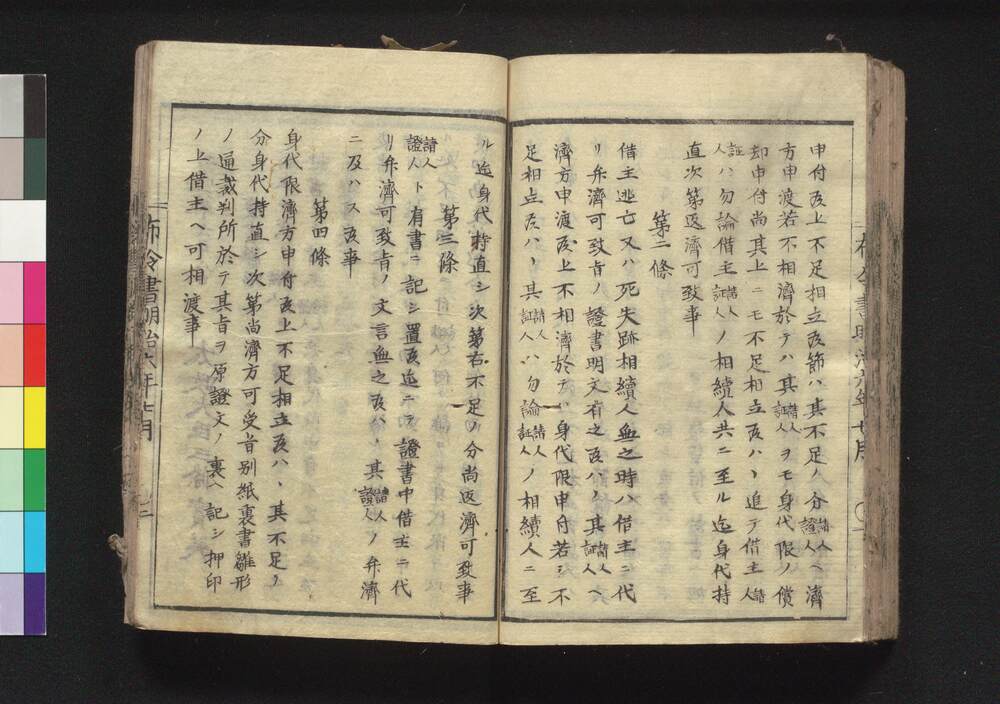 申付候上不足相立候節ハ其不足ノ分請人證人ヘ濟
方申渡若不相濟於テハ其請人証人ヲモ身代限ノ償
却申付尚其上ニモ不足相立候ハヽ追テ借主請人
証人ハ勿論借主請人証人ノ相續人共ニ至ル迄身代持
直次第返濟可致事
第二條
借主逃亡又ハ死失跡相續人無之時ハ借主ニ代
リ弁濟可致旨ノ證書明文有之候ハヽ其請人証人ヘ
濟方申渡候上不相濟於テハ身代限申付若シ不
足相立候ハヽ其請人証人ハ勿論請人証人ノ相續人ニ至
ル迄身代持直シ次第右不足ノ分尚返濟可致事
第三條
請人證人ト有書ニ記シ置候迄ニテ證書中借主ニ代
リ弁濟可致旨ノ文言無之候ハヽ其請人證人ノ弁濟
ニ及ハス候事
第四條
身代限濟方申付候上不足相立候ハヽ其不足ノ
分身代持直シ次第尚濟方可受旨別紙裏書雛形
ノ通裁判所於テ其旨ヲ原證文ノ裏ヘ記シ押印
ノ上借主ヘ可相渡事
布令書明治六年七月
二